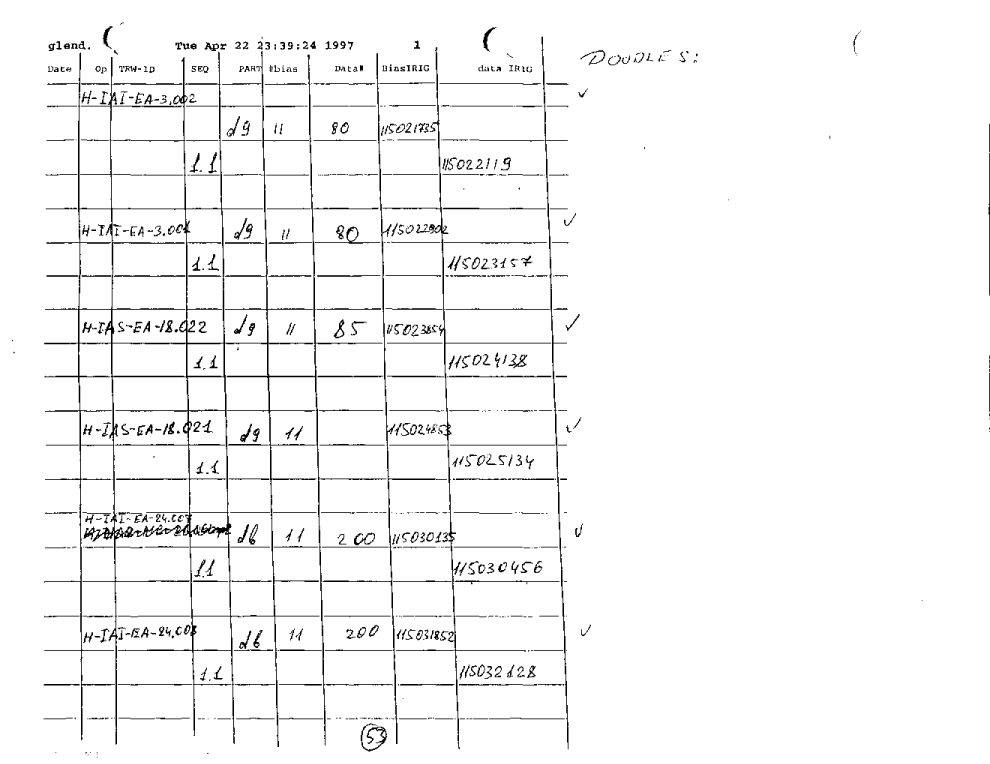 glend. Tue Apr 22 23:39:24 1997 1
DOODLES:
Date Op TRW-ID SEQ PART #bias Data# BiasIRIG data IRIG
H-IAI-EA-3.002
d9 11 80 115021735
1.1 115022119
H-IAI-EA-3.001 d9 11 80 115022902
1.1 115023157
H-IAS-EA-18.022 d9 11 85 115023854
1.1 115024138
H-IAS-EA-18.021 d9 11 115024853
1.1 115025134
H-IAI-EA-24.007
d6 11 200 115030135
1.1 115030456
H-IAI-EA-24.008 d6 11 200 115031852
1.1 115032128
53